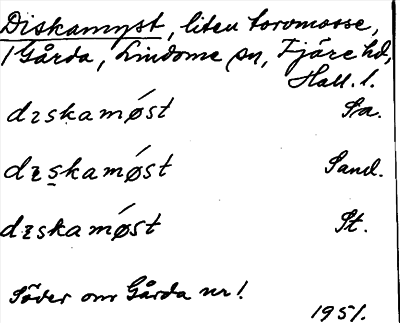 Diskamyst, liten torvmosse,
i Gårda, Lindome sn, Fjäre hd,
Hall. l.
dɪskamǿst Sa.
dɪskamǿst Sand.
dɪskamǿst St.
Söder om Gårda nr 1.
1951.